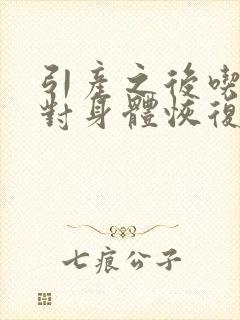 引產之後喫
對身體恢復
七痕公子